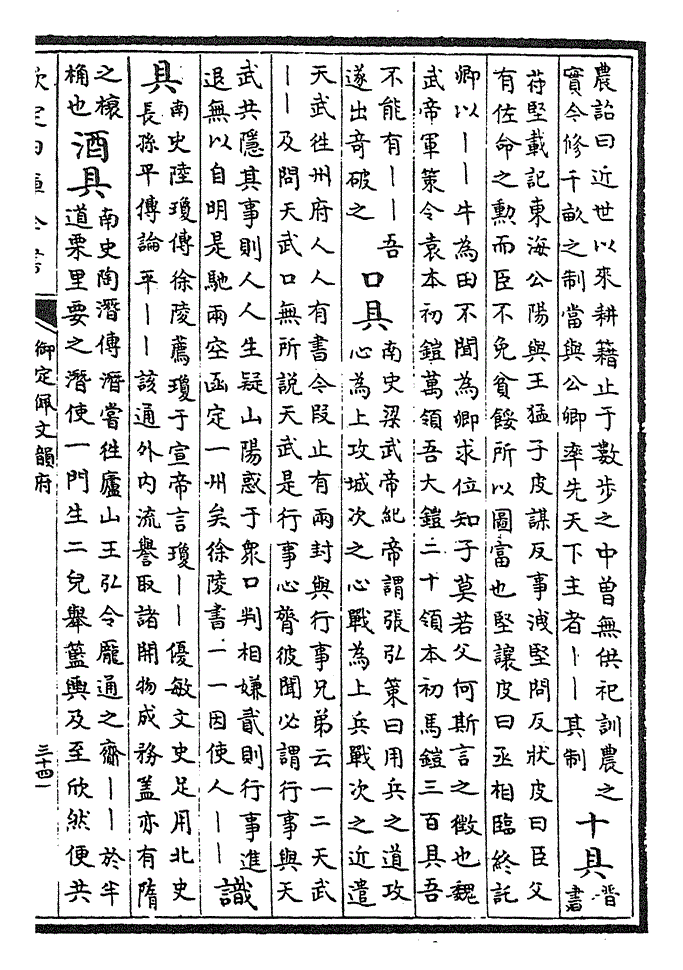 農詔曰近世以來耕籍止于數步之中曾無供祀訓農之
實令修千畝之制當與公卿率先天下主者——其制
十具
晉
書
苻堅載記東海公陽與王猛子皮謀反事洩堅問反狀皮曰臣父
有佐命之勲而臣不免貧餒所以圖富也堅讓皮曰丞相臨終託
卿以——牛為田不聞為卿求位知子莫若父何斯言之徵也魏
武帝軍策令袁本初鎧萬領吾大鎧二十領本初馬鎧三百具吾
不能有——吾
遂出竒破之
口具
南史梁武帝紀帝謂張弘策曰用兵之道攻
心為上攻城次之心戰為上兵戰次之近遣
天武徃州府人人有書今段止有兩封與行事兄弟云一二天武
——及問天武口無所説天武是行事心膂彼聞必謂行事與天
武共隱其事則人人生疑山陽惑于衆口判相嫌貳則行事進
退無以自明是馳兩空函定一州矣徐陵書一一因使人——
識
具
南史陸瓊傳徐陵薦瓊于宣帝言瓊——優敏文史足用北史
長孫平傳論平——該通外内流譽取諸開物成務蓋亦有隋
之榱
桷也
酒具
南史陶潛傳潛嘗徃廬山王弘令龐通之齎——於半
道栗里要之潛使一門生二兒舉籃輿及至欣然便共
欽定四庫全書
御定佩文韻府
三十四